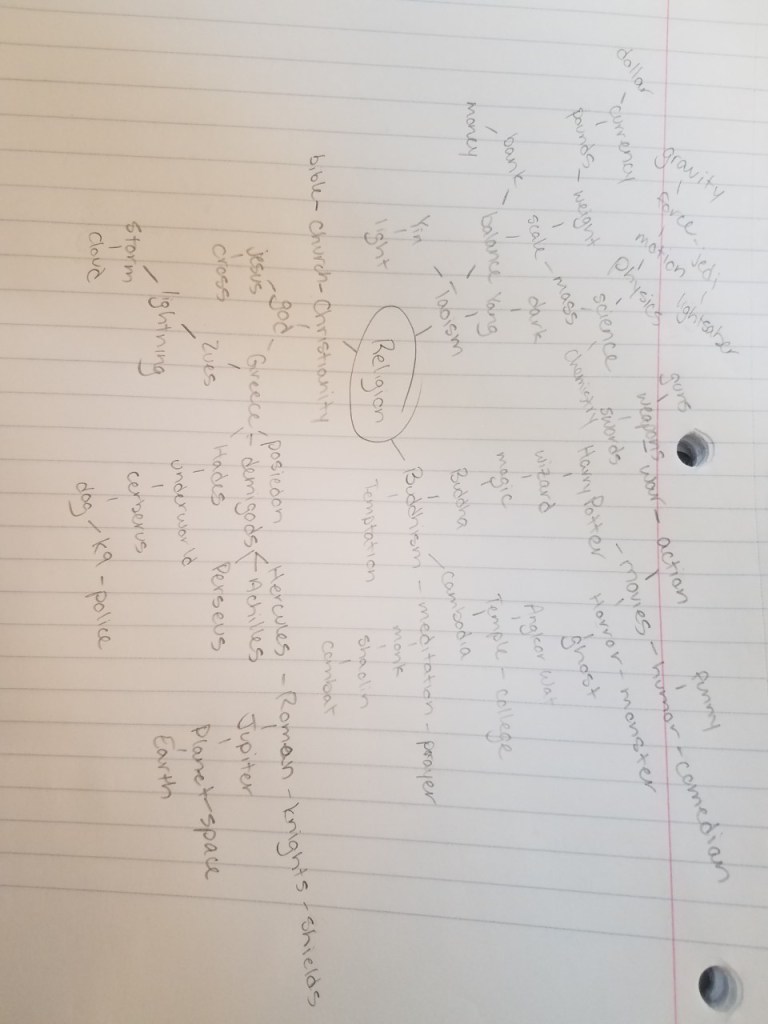 funny
humor - comedian
guns
weapons
war - action
gravity
force - jedi
lightsaber
motion
physics
dollar - currency
pounds - weight
science
swords
chemistry
Harry Potter - movies -
Horror - monster
scale - mass
wizard
ghost
Angkor Wat
money
bank - balance
Yang
dark
magic
Temple - college
Taoism
Buddha
Cambodia
Yin
light
Religion
Buddhism - meditation - prayer
Temptation
monk
shaolin
combat
bible - church - Christianity
god - Greece - demigods
posiedon
Hercules - Roman - knights - shields
jesus
cross
Achilles
Jupiter
Zues
Hades
Perseus
Planet - space
lightning
underworld
Earth
storm
cloud
cerberus
dog / K9 - police